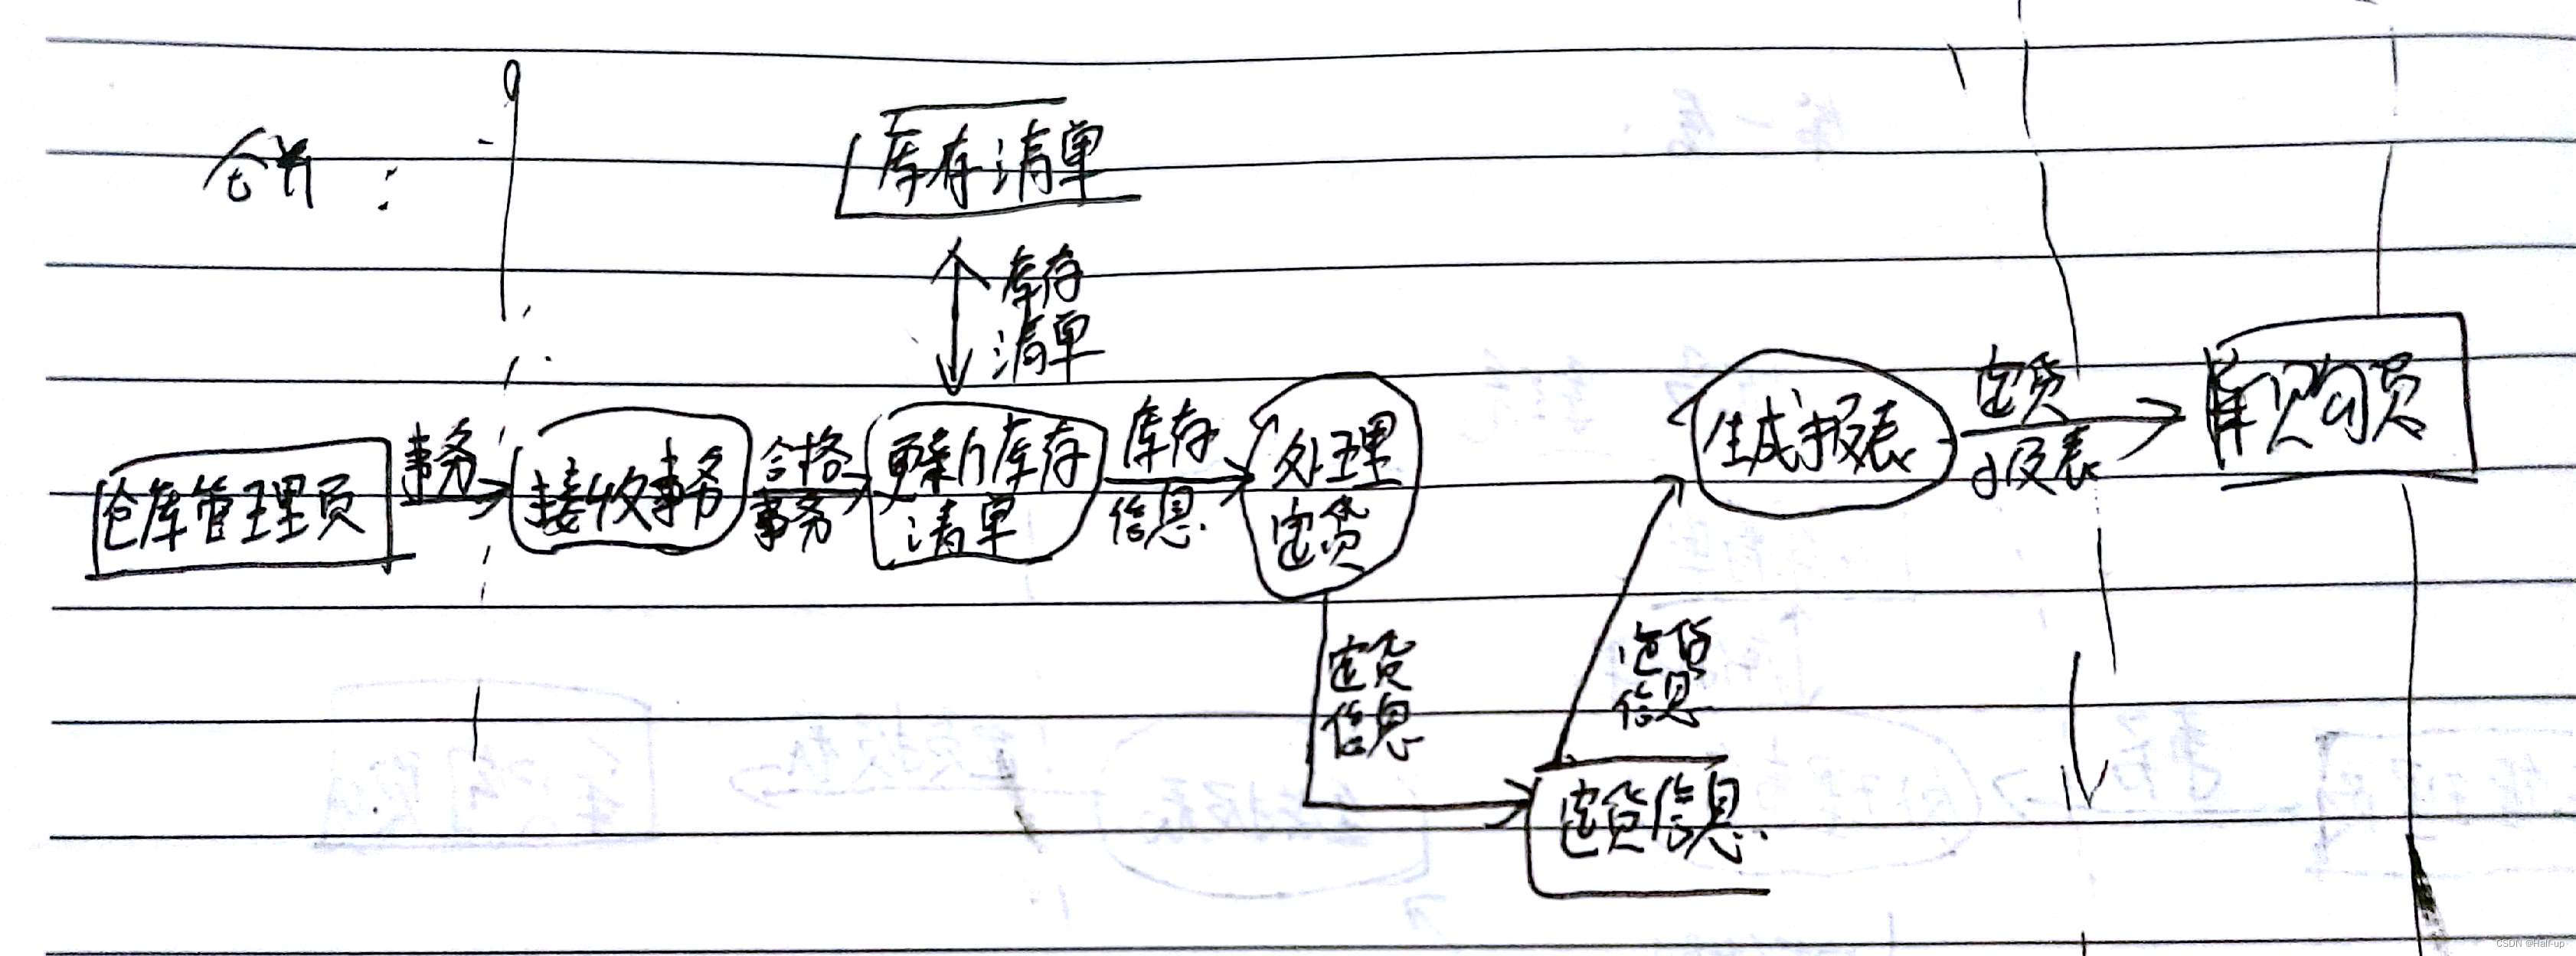 合并:
库存清单
库存
清单
仓库管理员
事务
接收事务
合格
事务
更新库存
清单
库存
信息
处理
定货
定货
信息
定货信息
定货
信息
生成报表
定货
报表
购员
CSDN @Half-up